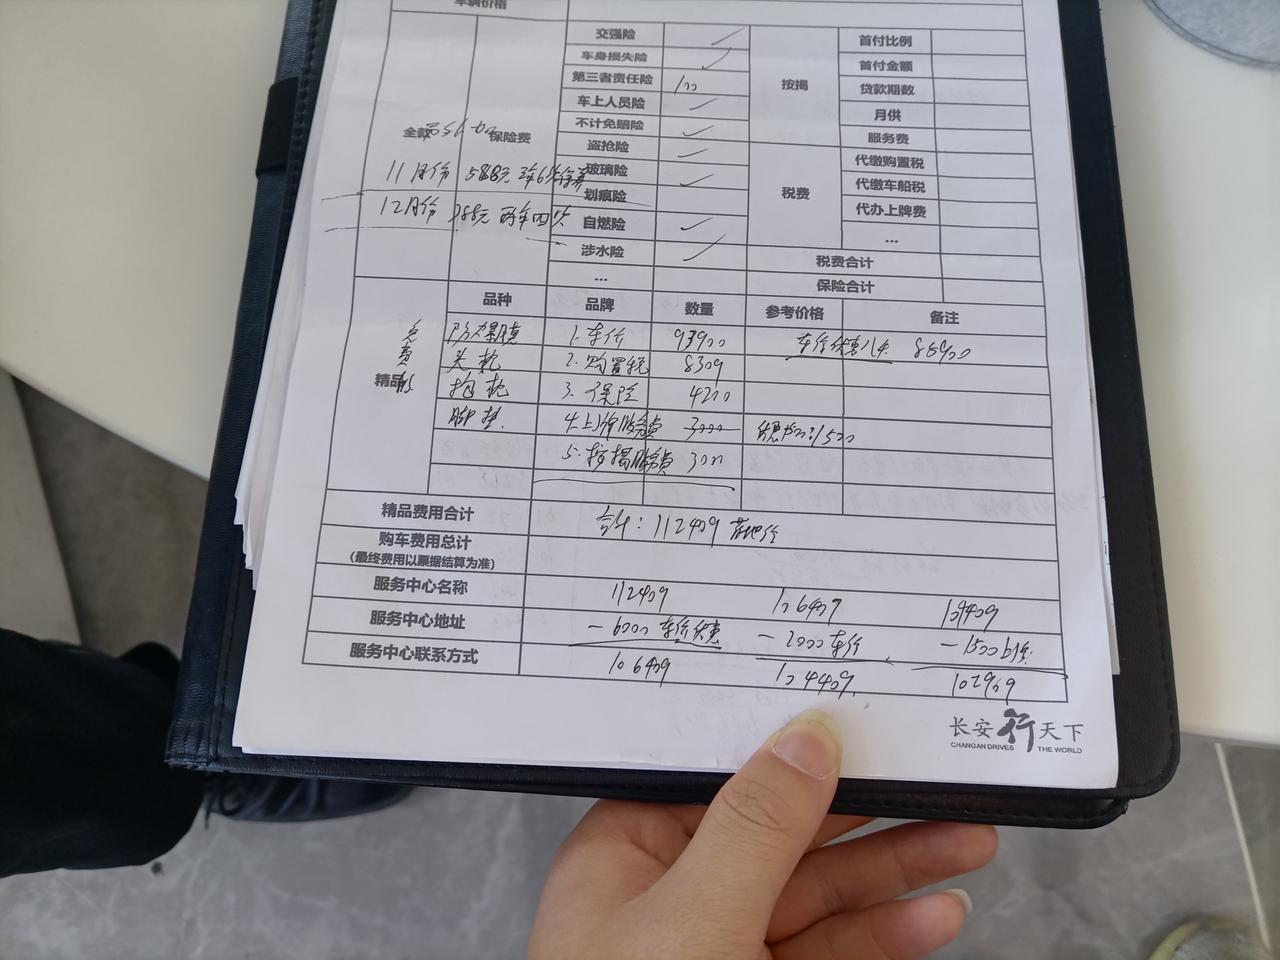 车辆价格
交强险
首付比例
车身损失险
首付金额
第三者责任险 100
按揭
贷款期数
车上人员险
月供
全款
保险费
不计免赔险
服务费
盗抢险
代缴购置税
11月份 588元
玻璃险
税费
代缴车船税
12月份
划痕险
代办上牌费
自燃险
...
涉水险
税费合计
...
保险合计
品种 品牌 数量 参考价格 备注
精品
免费
防爆膜 1.车价 93900 车价优惠 85900
头枕 2.购置税 8309
抱枕 3.保险 4200
脚垫 4.上牌服务费 3000 1500
5.按揭服务费 3000
精品费用合计
合计:112409 落地价
购车费用总计
(最终费用以票据结算为准)
服务中心名称 112409 106409 104409
服务中心地址 -6000 车价优惠 -2000 车价 -1500
服务中心联系方式 106409 104409 102909
长安行天下
CHANGAN DRIVES THE WORLD